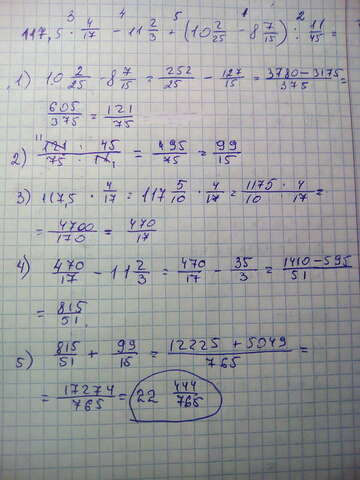 3 4 5 1 2
117,5 · 4/17 - 11 2/3 + (10 2/25 - 8 7/15) : 11/45 =
1) 10 2/25 - 8 7/15 = 252/25 - 127/15 = 3780 - 3175/375 =
605/375 = 121/75
2) 11 121 · 45/75 · 11 1 = 495/75 = 99/15
3) 117,5 · 4/17 = 117 5/10 · 4/17 = 1175 · 4/10 · 17 =
= 4700/170 = 470/17
4) 470/17 - 11 2/3 = 470/17 - 35/3 = 1410 - 595/51
= 815/51
5) 815/51 + 99/15 = 12225 + 5049/765 =
= 17274/765 = 22 444/765